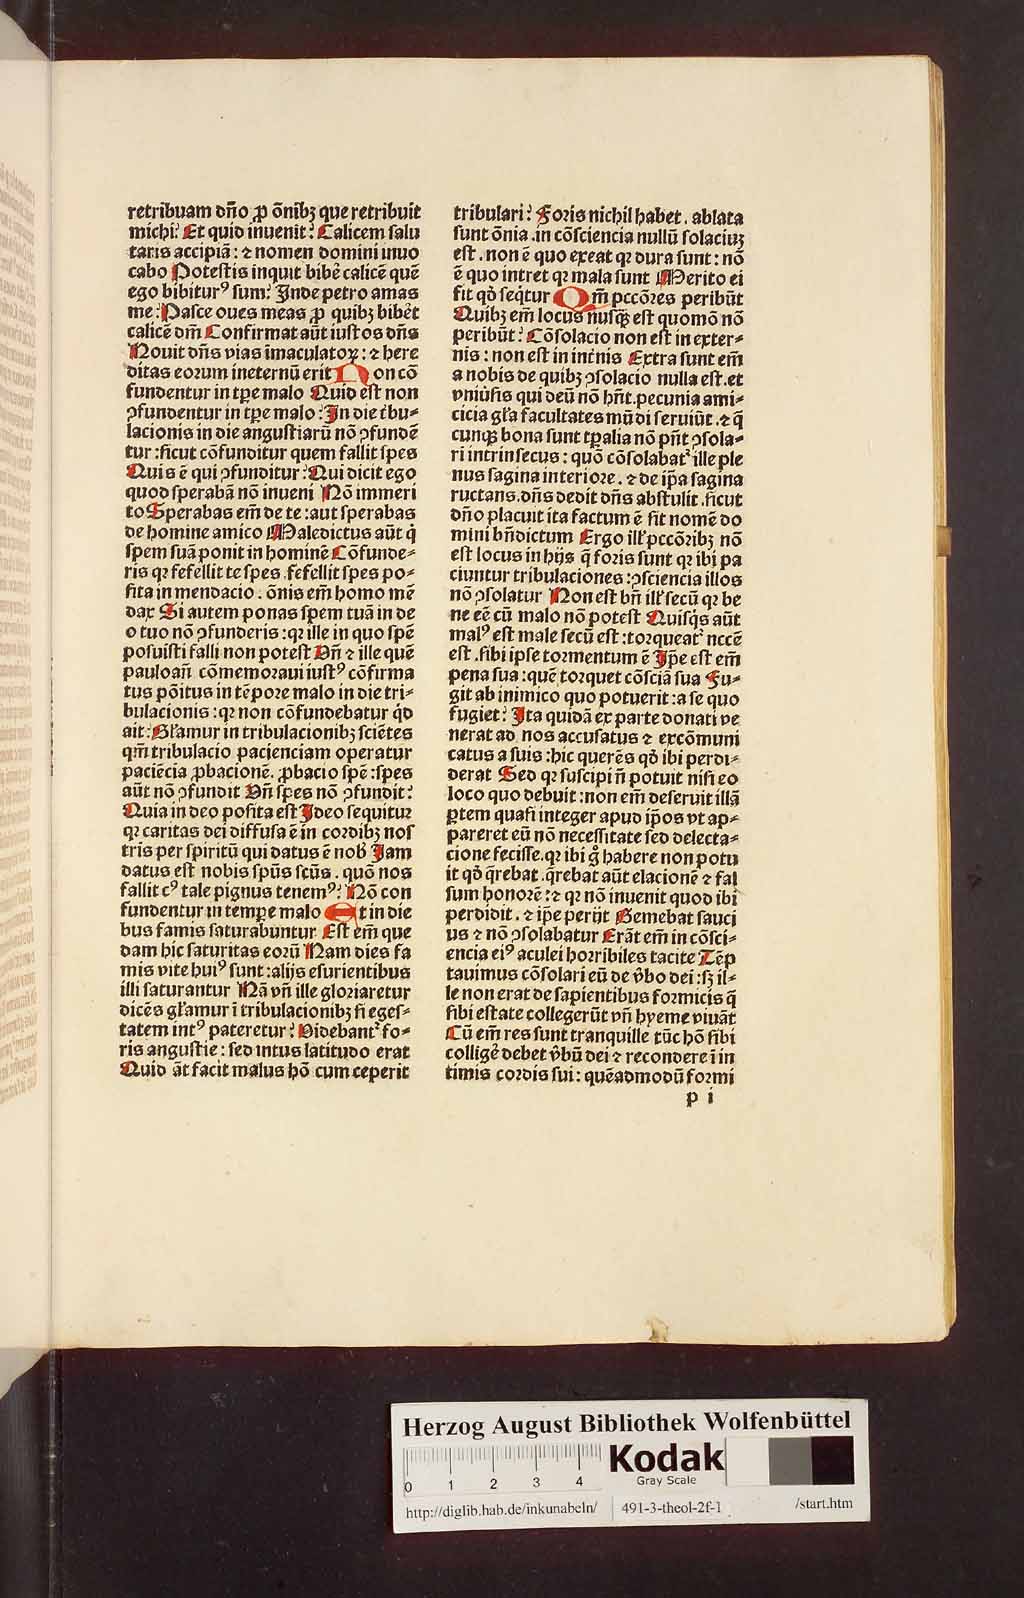 retribuam dño ꝓ õnibꝫ que retribuit
michi? Et quid inuenit? Calicem salu
taris accipiã: ⁊ nomen domini inuo
cabo Potestis inquit bibeͬ calicē quē
ego bibiturꝰ sum? Inde petro amas
me? Pasce oues meas ꝓ quibꝫ bibeͬt
calicē dñi Confirmat aūt iustos dñs
Nouit dñs vias imaculatoꝝ: ⁊ here
ditas eorum ineternū erit Non cō
fundentur in tꝑe malo Quid est non
ꝯfundentur in tꝑe malo? In die tͥbu⸗
lacionis in die angustiarū nō ꝯfundē
tur: sicut cōfunditur quem fallit spes
Quis ē qui ꝯfunditur? Qui dicit ego
quod sperabā nō inueni Nō immeri
to Sperabas em̄ de te: aut sperabas
de homine amico Maledictus aūt qͥ
spem suā ponit in hominē Cōfunde⸗
ris qꝛ fefellit te spes. fefellit spes po⸗
sita in mendacio. õnis em̄ homo mē
dax Si autem ponas spem tuā in de
o tuo nō ꝯfunderis: qꝛ ille in quo spē
posuisti falli non potest Vñ ⁊ ille quē
pauloañ cōmemoraui iustꝰ cōfirma
tus pōitus in tēpore malo in die tri⸗
bulacionis: qꝛ non cōfundebatur qͥd
ait? Gl̃amur in tribulacionibꝫ sciētes
qm̄ tribulacio pacienciam operatur
paciēcia ꝓbacionē. ꝓbacio spē: spes
aūt nō ꝯfundit Vñ spes nō ꝯfundit?
Quia in deo posita est Ideo sequitur
qꝛ caritas dei diffusa ē in cordibꝫ nos
tris per spiritū qui datus ē nob̄ Iam
datus est nobis spūs scūs. quō nos
fallit cꝰ tale pignus tenemꝰ? Nō con
fundentur in tempe malo Et in die
bus famis saturabuntur Est em̄ que
dam hic saturitas eorū Nam dies fa
mis vite huiꝰ sunt: alijs esurientibus
illi saturantur Nā vñ ille gloriaretur
dicēs gl̃amur ī tribulacionibꝫ si eges⸗
tatem intꝰ pateretur? Videbantᷣ fo⸗
ris angustie: sed intus latitudo erat
Quid āt facit malus hō cum ceperit
tribulari? Foris nichil habet. ablata
sunt õnia. in cōsciencia nullū solaciuꝫ
est. non ē quo exeat qꝛ dura sunt: nō
ē quo intret qꝛ mala sunt Merito ei
fit qd̄ seq̄tur Qm̄ pccōres peribūt
Quibꝫ em̄ locus nusqꝫ est quomō nō
peribūt? Cōsolacio non est in exter⸗
nis: non est in intͥnis Extra sunt em̄
a nobis de quibꝫ ꝯsolacio nulla est. et
vniūsis qui deū nō hñt. pecunia ami⸗
cicia gl̃a facultates mūdi seruiūt. ⁊ q̄
cunqꝫ bona sunt tꝑalia nō pñt ꝯsola⸗
ri intrinsecus: quō cōsolabatᷣ ille ple
nus sagina interiore. ⁊ de ip̄a sagina
ructans. dñs dedit dñs abstulit. sicut
dño placuit ita factum ē sit nomē do
mini bñdictum Ergo ill̓ pccōribꝫ nō
est locus in hijs q̄ foris sunt qꝛ ibi pa
ciuntur tribulaciones: ꝯsciencia illos
nō ꝯsolatur Non est bñ ill̓ secū qꝛ be
ne eē cū malo nō potest Quisqͥs aūt
malꝰ est male secū est: torqueatᷣ nccē
est. sibi ipse tormentum ē Ip̄e est em̄
pena sua: quē torquet cōsciā sua Fu⸗
git ab inimico quo potuerit: a se quo
fugiet? Ita quidā ex parte donati ve
nerat ad nos accusatus ⁊ excōmuni
catus a suis: hic querēs qd̄ ibi perdi⸗
derat Sed qꝛ suscipi ñ potuit nisi eo
loco quo debuit: non em̄ deseruit illā
ꝑtem quasi integer apud ip̄os vt ap⸗
pareret eū nō necessitate sed delecta⸗
cione fecisse. qꝛ ibi gͦ habere non potu
it qd̄ q̄rebat. q̄rebat aūt elacionē ⁊ fal
sum honorē: ⁊ qꝛ nō inuenit quod ibi
perdidit. ⁊ ip̄e perijt Gemebat sauci
us ⁊ nō ꝯsolabatur Erāt em̄ in cōsci⸗
encia eiꝰ aculei horribiles tacite Tēp
tauimus cōsolari eū de v̄bo dei: sꝫ il⸗
le non erat de sapientibus formicis q̄
sibi estate collegerūt vñ hyeme viuāt
Cū em̄ res sunt tranquille tūc hō sibi
colligeͬ debet v̄bū dei ⁊ recondere ī in
timis cordis sui: quēadmodū formi
p i
Herzog August Bibliothek Wolfenbüttel
0 1 2 3 4
Kodak
Gray Scale
http://diglib.hab.de/inkunabeln/ 491-3-theol-2f-1 /start.htm